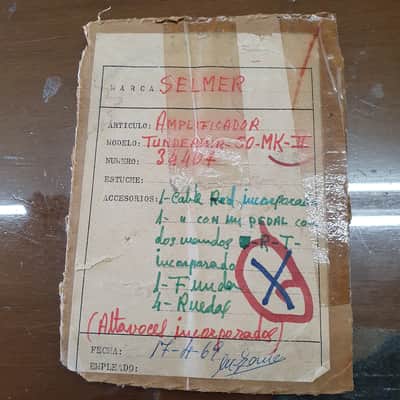 MARCA: SELMER
ARTICULO: AMPLIFICADOR
MODELO: TUNDERBIR-50-MK-II
NUMERO: 34407
ESTUCHE:
ACCESORIOS: 1-Cable Red incorporado
1- " CON UN PEDAL con
dos mandos R-T-
incorporado
1-Funda
4-Ruedas
(Altavoces incorporados)
FECHA: 17-4-69
EMPLEADO: